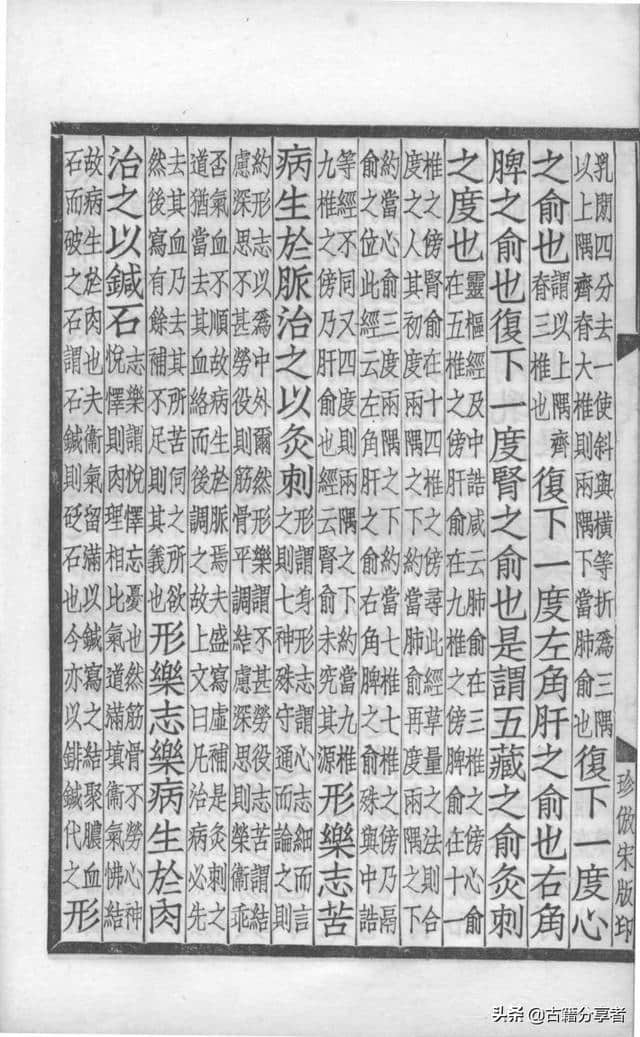 乳閒四分去一使斜與橫等折爲三隅
以上隅齊脊大椎則兩隅下當肺俞也
復下一度心
之俞也
謂以上隅齊
脊三椎也
復下一度左角肝之俞也右角
脾之俞也復下一度腎之俞也是謂五藏之俞灸刺
之度也
靈樞經及中誥咸云肺俞在三椎之傍心俞
在五椎之傍肝俞在九椎之傍脾俞在十一
椎之傍腎俞在十四椎之傍尋此經草量之法則合
度之人其初度兩隅之下約當肺俞再度兩隅之下
約當心俞三度兩隅之下約當七椎七椎之傍乃鬲
俞之位此經云左角肝之俞右角脾之俞殊與中誥
等經不同又四度則兩隅之下約當九椎
九椎之傍乃肝俞也經云腎俞未究其源
形樂志苦
病生於脈治之以灸刺
形謂身形志謂心志細而言
之則七神殊守通而論之則
約形志以爲中外爾然形樂謂不甚勞役志苦謂結
慮深思不甚勞役則筋骨平調結慮深思則榮衞乖
否氣血不順故病生於脈焉夫盛寫虛補是灸刺之
道猶當去其血絡而後調之故上文曰凡治病必先
去其血乃去其所苦伺之所欲
然後寫有餘補不足則其義也
形樂志樂病生於肉
治之以鍼石
志樂謂悅懌忘憂也然筋骨不勞心神
悅懌則肉理相比氣道滿填衞氣怫結
故病生於肉也夫衞氣留滿以鍼寫之結聚膿血
石而破之石謂石鍼則砭石也今亦以錍鍼代之
形
珍倣宋版印
头条 @古籍分享者